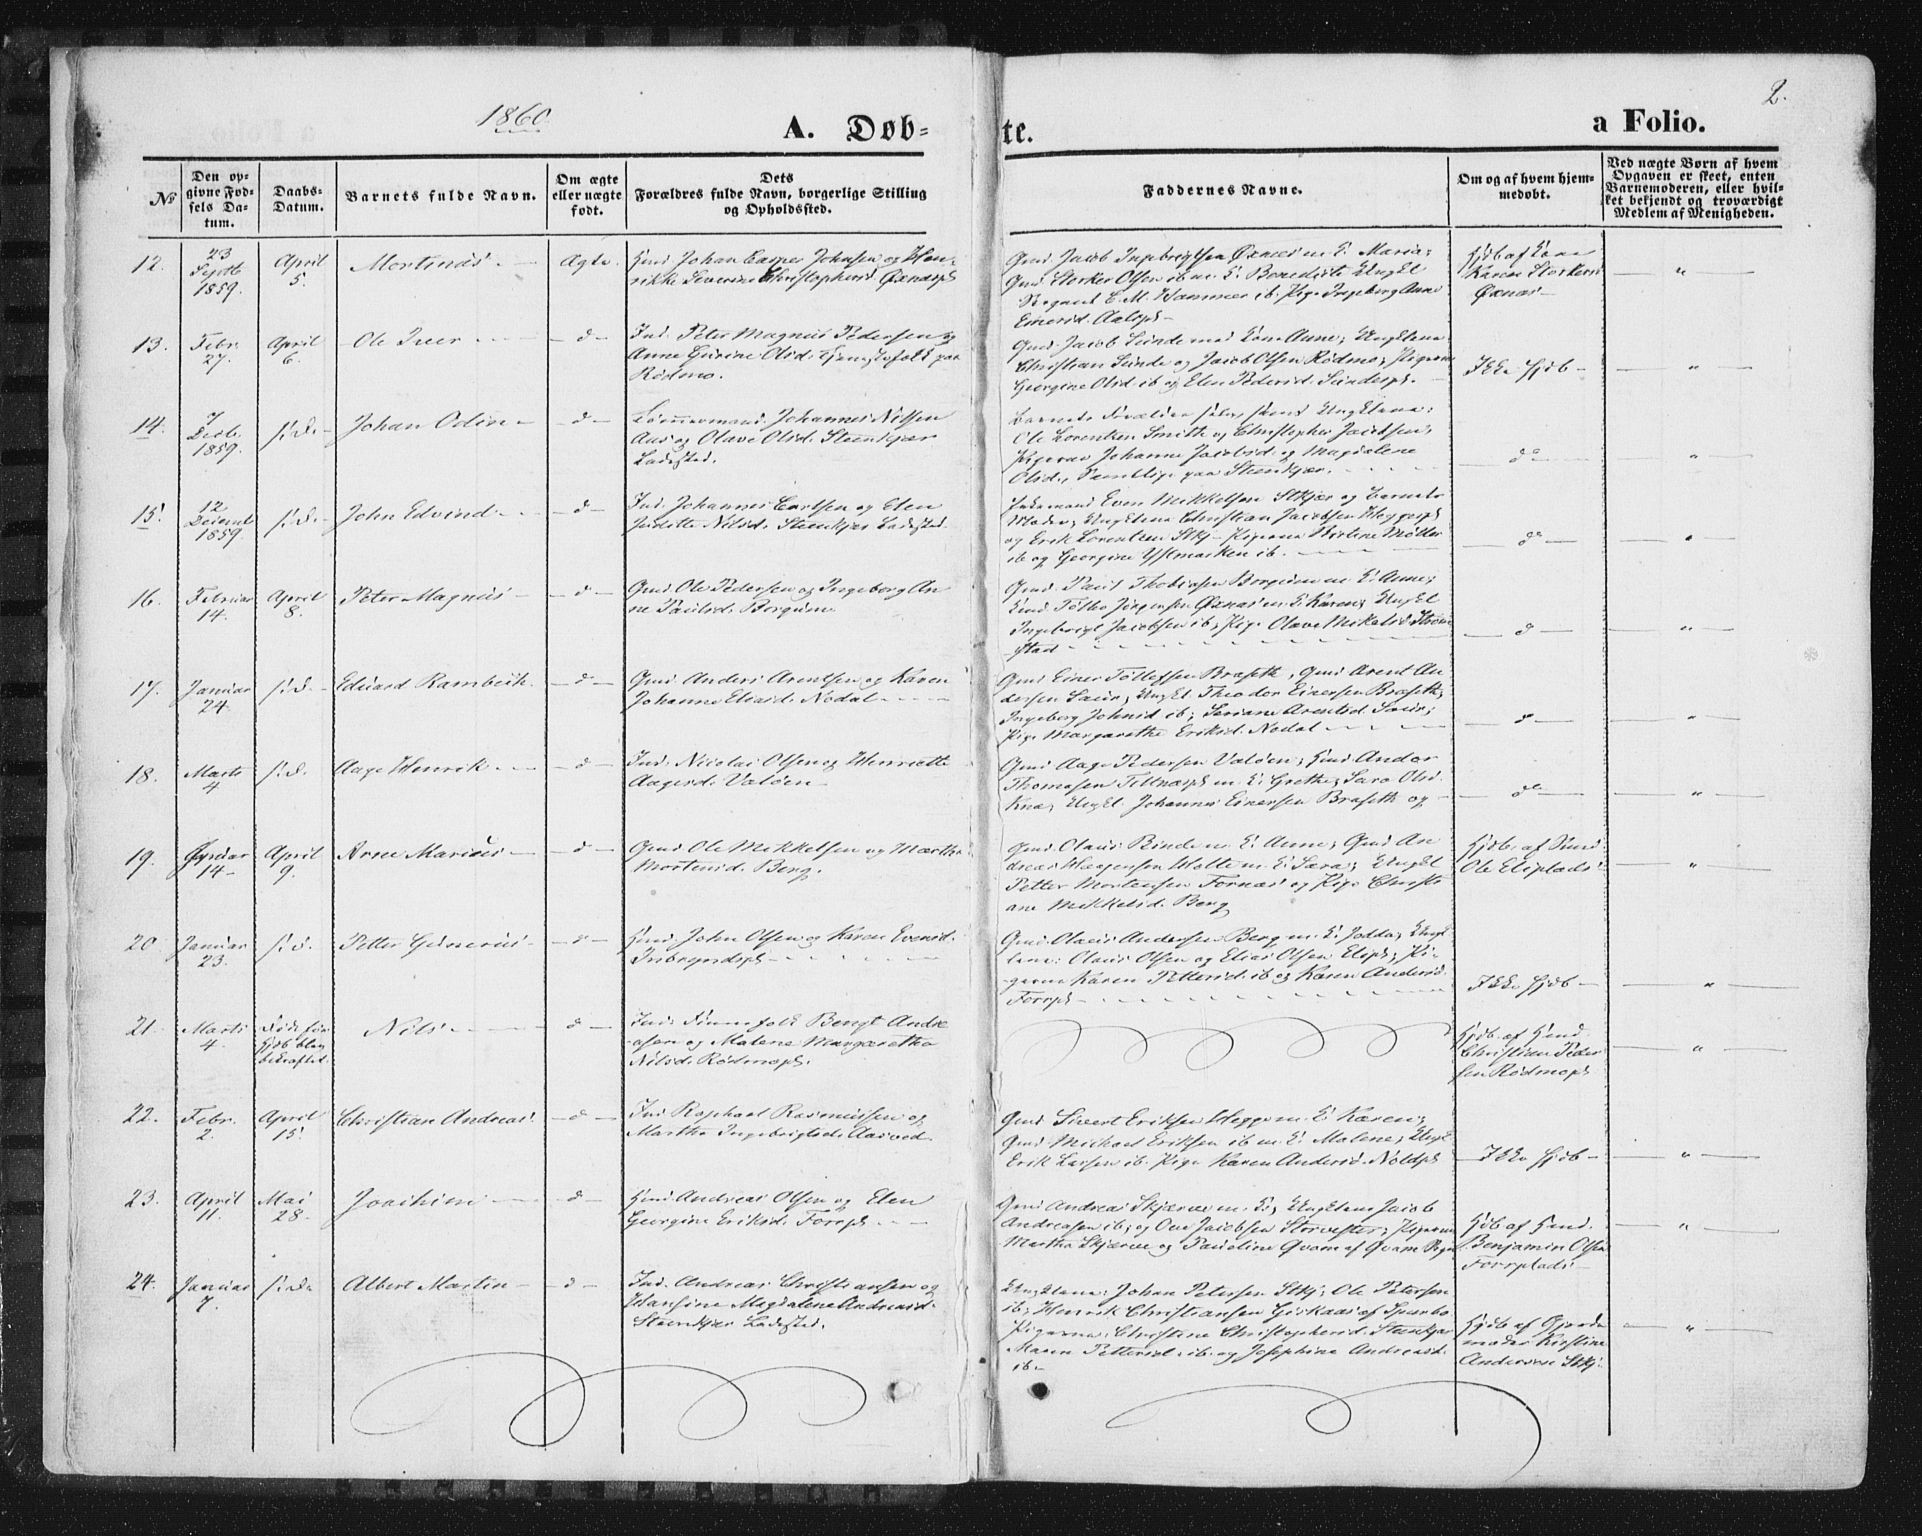 1860
2.
A. Døb=
te.
a Folio.
№
Den op-
givne Fød-
sels Da-
tum.
Daabs-
Datum.
Barnets fulde Navn.
Om ægte
eller uægte
født.
Dets
Forældres fulde Navn, borgerlige Stilling
og Opholdssted.
Faddernes Navne.
Om og af hvem hjem-
medøbt.
Ved uægte Børn af hvem
Opgaven er skeet, enten
Barnemoderen, eller hvil-
ket bekjendt og troværdigt
Medlem af Menigheden.
12.
23
Septb
1859.
April
5.
Mortinus
Ægte
Hmd Johan Casper Johnsen og Hen-
rikke Severine Christophersd. Øxnæspl
Gmd. Jacob Ingebrigtsen Øxnes m. K. Maria;
Gmd Storker Olsen ib m. K. Benedikte Ungkl
E. M. Hammer ib. Pige Ingeborg Anna
Einersd. Aalspl
Hjdb af Kone
Karen Storkers
Øxnæs
13.
Febr.
27.
April
6.
Ole Iver
d
Ind. Peter Magnus Pedersen og
Anne Gurine Olsd. Tjenestefolk paa
Rødmo.
Gmd Jacob Sunde med Kone Anne; Ungklene
Christian Sunde og Jacob Olsen Rødmo; Pigerne
Georgine Olsd ib og Elen Pedersd. Sundespl.
Ikke Hjdb
14.
7
Decb.
1859.
s. D.
Johan Odin
d
Tømmermand. Johannes Nilsen
Aas og Olave Olsd. Steenkjær
Ladested.
Barnets Forældre selv, samt Ungklene:
Ole Lorentzen Smith og Christopher Jacobsen;
Pigerne Johanne Jacobsd. og Magdalene
Olsd., Samtlige paa Steenkjær.
do
15.
12
Decembr
1859.
s. D.
John Edvind
d
Ind. Johannes Carlsen og Elen
Judithe Nilsd. Steenkjær Ladested
Even Mikkelsen Stkjær og Barnets
Moder; Ungklene Christian Jacobsen Heggespl
og Erik Lorentzen Stkj Pigerne Møller
ib og Georgine ib.
do
16.
Februar
14.
April
8.
Peter Magnus
d
Gmd Ole Pedersen og Ingeborg An
ne Paulsd. Borgum
Gmd. Paul Thobiasen Borgum m. K. Anne;
Jørgensen Øxnæs m. K. Karen; Ungkl
Ingebrigt Jacobsen ib; Pige Olave Mikelsd. Strøm
stad
d
17.
Januar
24.
s. D.
Eduard Rambech
d
Gmd. Anders Arentsen og Karen
Johanne Eliasd. Nødal
Gmd Einer Tollefsen Braseth, Gmd Arent An
dersen Saur; Ungkl Theodor Einersen Braseth;
Ingeborg Johnsd ib; Seriane Arentsd. Saur;
Pige Margarethe Eriksd. Nødal
do
18.
Marts
4
s. D.
Aage Henrik
d
Ind. Nicolai Olsen og Henriette
Aagesd. Valøen
Gmd Aage Pedersen Valøen; Hmd Andor
Thomasen Tillnæspl m K. Grethe; Sara Olsd.
Ungkl. Johannes Einersen Braseth og
do
19.
Januar
14
April
9.
Arne Marius
d
Gmd Ole Mikkelsen og Martha
Mortensd. Berg.
Gmd. Olaus Binde m. K. Anne; Gmd An
dreas Haagensen Holte m. K. Sara; Ungkl
Petter Mortensen Fornæs og Pige Christi
ane Mikkelsd. Berg
Hjdb. af Smed
Ole
20
Januar
23.
s. D.
Petter Gunerius
d
Hmd. John Olsen og Karen Evensd.
Gmd. Olaus Andersen Berg m. K. Jodda; Ungk
lene: Olaus Olsen og Elias Olsen; Pi
gerne Karen Pettersd. ib og Karen Andersd.
Forrpl
Ikke Hjdb
21.
Marts
4.
Død før
Hjdb blev
bekræftet.
Nils
d
Ind. Finnefolk Bengt Andre
asen og Malene Margaretha
Nilsd. Rødmopl.
Hjdb. af Hmd.
Christian Peder
sen Rødmopl
22.
Febr.
2.
April
15.
Christian Andreas
d
Ind Raphael Rasmussen og
Martha Ingebrigtsd. Aasved
Gmd Sivert Eriksen Hegge m. K. Karen;
Gmd Michael Eriksen ib m. K. Malene; Ungk
Erik Larsen ib. Pige Karen Andersd.
Ikke Hjdb
23.
April
11.
Mai
28.
Joachim
d
Hmd. Andreas Olsen og Elen
Georgine Eriksd. Forrpl
Gmd Andreas Skjærve m. K; Ungklene Jacob
Andreasen ib; og Ole Jacobsen; Pigerne
Martha Skjærve og Pauline Qvam af Qvam Sogn
Hjdb af Hmd.
Benjamin Olsen
Forrplads
24.
Januar
7.
s. D.
Albert Martin
d
Ind. Andreas Christiansen og
Hansine Magdalene Andreasd.
Steenkjær Ladested.
Ungklene: Johan Petersen Stkj; Ole Petersen
ib; Henrik Christiansen Giskaas af Sparbo
Pigerne: Christine Christophersd. Steenkjær
Maren Pettersd. ib. og Josephine Andreasd.
ib
Hjdb af Gjorde
moder Kirstine
Andersen Stkj.